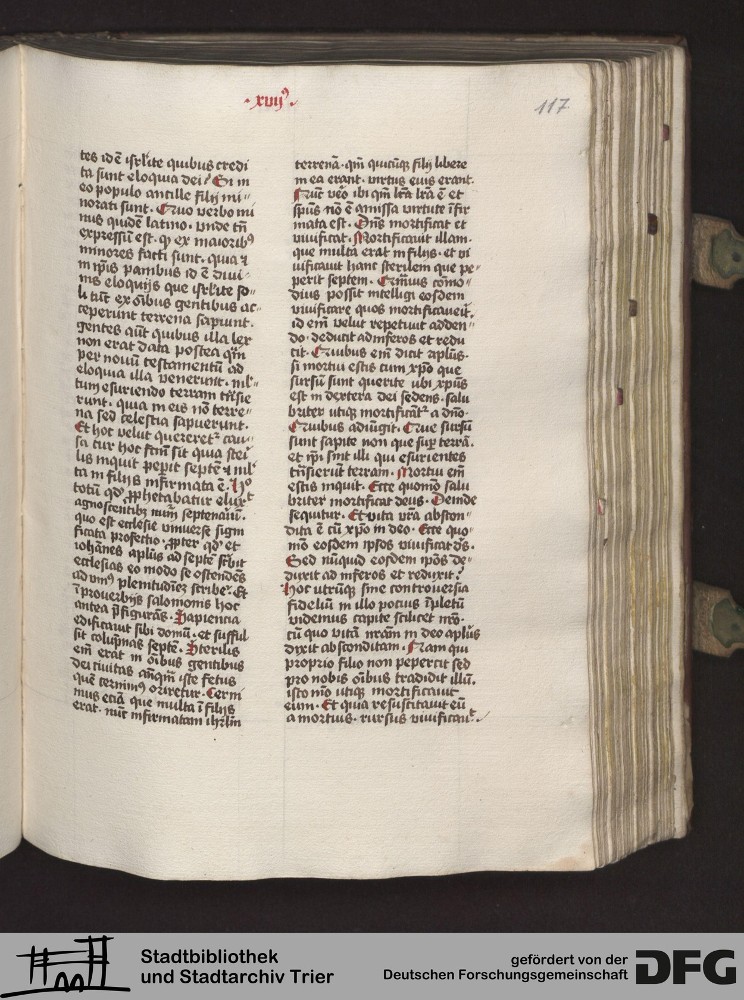 ·xvij·
117
tes idē isrl'ite quibus credi
ta sunt eloquia dei? Si in
eo populo antille filij mi-
norati sunt. Quo verbo mi
nus quidē latino. vnde tn̄
expressū est. ꝙ ex maioribꝰ
minores facti sunt. quia ⁊
in ipis panibus id ē divi-
nis eloquijs que isrl'ite so-
li tūc ex oībus gentibus ac-
ceperunt terrena sapiunt.
gentes aūt quibus illa lex
non erat data postea qm̄
per novū testamentū ad
eloquia illa venerunt. ml'-
tum esuriendo terram tn̄sie
runt. quia in eis nō terre-
na sed celestia sapuerunt.
Et hoc velut quereretᷣ cau-
sa cur hoc fcm̄ sit quia steri
lis inquit peperit septē ⁊ ml'
ta in filijs infirmata ē. Hoc
totū qd' ꝓphetabatur eluxᵗ
agnoscentibꝫ nūm septenariū.
quo est ecclesie vniuerse signi
ficata perfectio. ꝓpter qd' et
iohānes aplus ad septē scribit
ecclesias eo modo se ostendēs
ad vniꝰ plenitudinez scribere. Et
ī proverbijs salomonis hoc
antea p̄figurās. Sapiencia
edificavit sibi domū. et sufful
sit colūpnas septē. Sterilis
em̄ erat in oībus gentibus
dei civitas anqm̄ iste fetus
quē cernimꝰ oriretur. Cerni
mus eciā que multa ī filijs
erat. nūc infirmatam ihrl'm
terrenā. qm̄ quicūqꝫ filij libere
in ea erant. virtus eius erant.
Nunc v̄o ibi qm̄ lr̄a ē et
spūs nō ē amissa virtute īfir
mata est. Dn̄s mortificat et
viuificat. Mortificauit illam.
que multa erat in filijs. et vi
uificauit hanc sterilem que pe-
perit septem. Qmuis cōmo-
dius possit intelligi eosdem
viuificare quos mortificauerit.
id em̄ velut repetiuit adden-
do. deducit ad inferos et redu
cit. Quibus em̄ dicit aplus.
si mortui estis cum xpo que
sursū sunt querite vbi xpūs
est in dextera dei sedens. salu
briter utiqꝫ mortificātᷣ a dno.
Quibus adiūgit. Que sursū
sunt sapite non que suꝑ terrā.
et ipi sint illi qui esurientes
tn̄sierūt terram. Mortui em̄
estis inquit. Ecce quomō salu
briter mortificat deus. Deinde
sequitur. Et vita vr̄a abscon-
dita ē cū xpo in deo. Ecce quo-
mō eosdem ipsos viuificat ds.
Sed nūquid eosdem ipōs de-
duxit ad inferos et reduxit?
Hoc utrūqꝫ sine controuersia
fideliū in illo pocius īpletū
videmus capite scilicet nr̄o.
cū quo vitā nr̄am in deo aplūs
dixit absconditam. Nam qui
proprio filio non pepercit sed
pro nobis oībus tradidit illū.
isto mō utiqꝫ mortificauit
eum. Et quia resuscitauit eū
a mortuis. rursus viuificauᵗ.
Stadtbibliothek
und Stadtarchiv Trier
gefördert von der
Deutschen Forschungsgemeinschaft
DFG